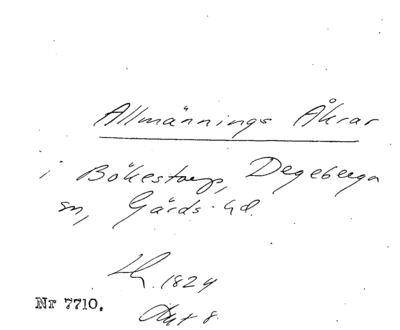 Allmännings Åkrar
i Bökestorp, Degeberga
sn, Gärds hd.
Lh. 1824
Nr 7710.
Akt 8.